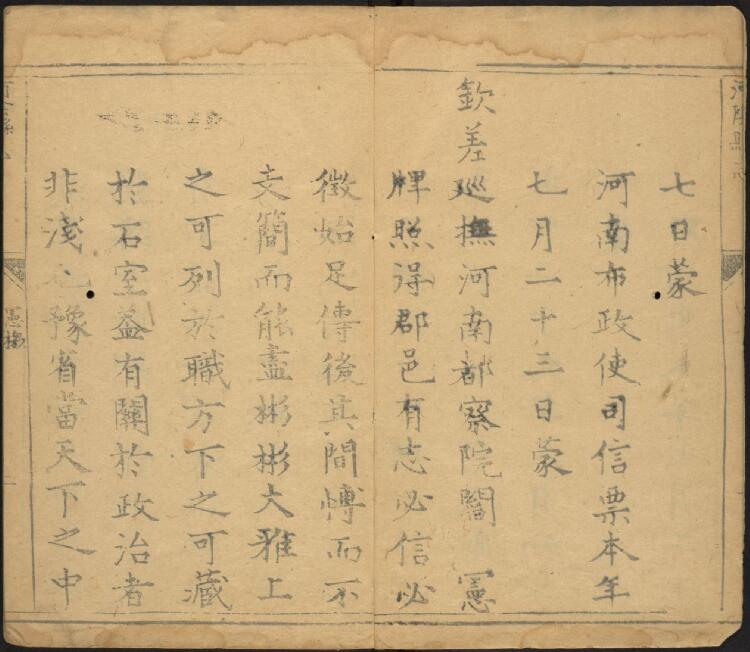 七日蒙
河南布政使司信票本年
七月二十三日蒙
欽差巡撫河南都察院閻 憲
牌照得郡邑有志必信必
徵始足傳後其間愽而不
支簡而能盡彬彬大雅上
之可列於職方下之可藏
於石室葢有關於政治者
非淺也豫省當天下之中